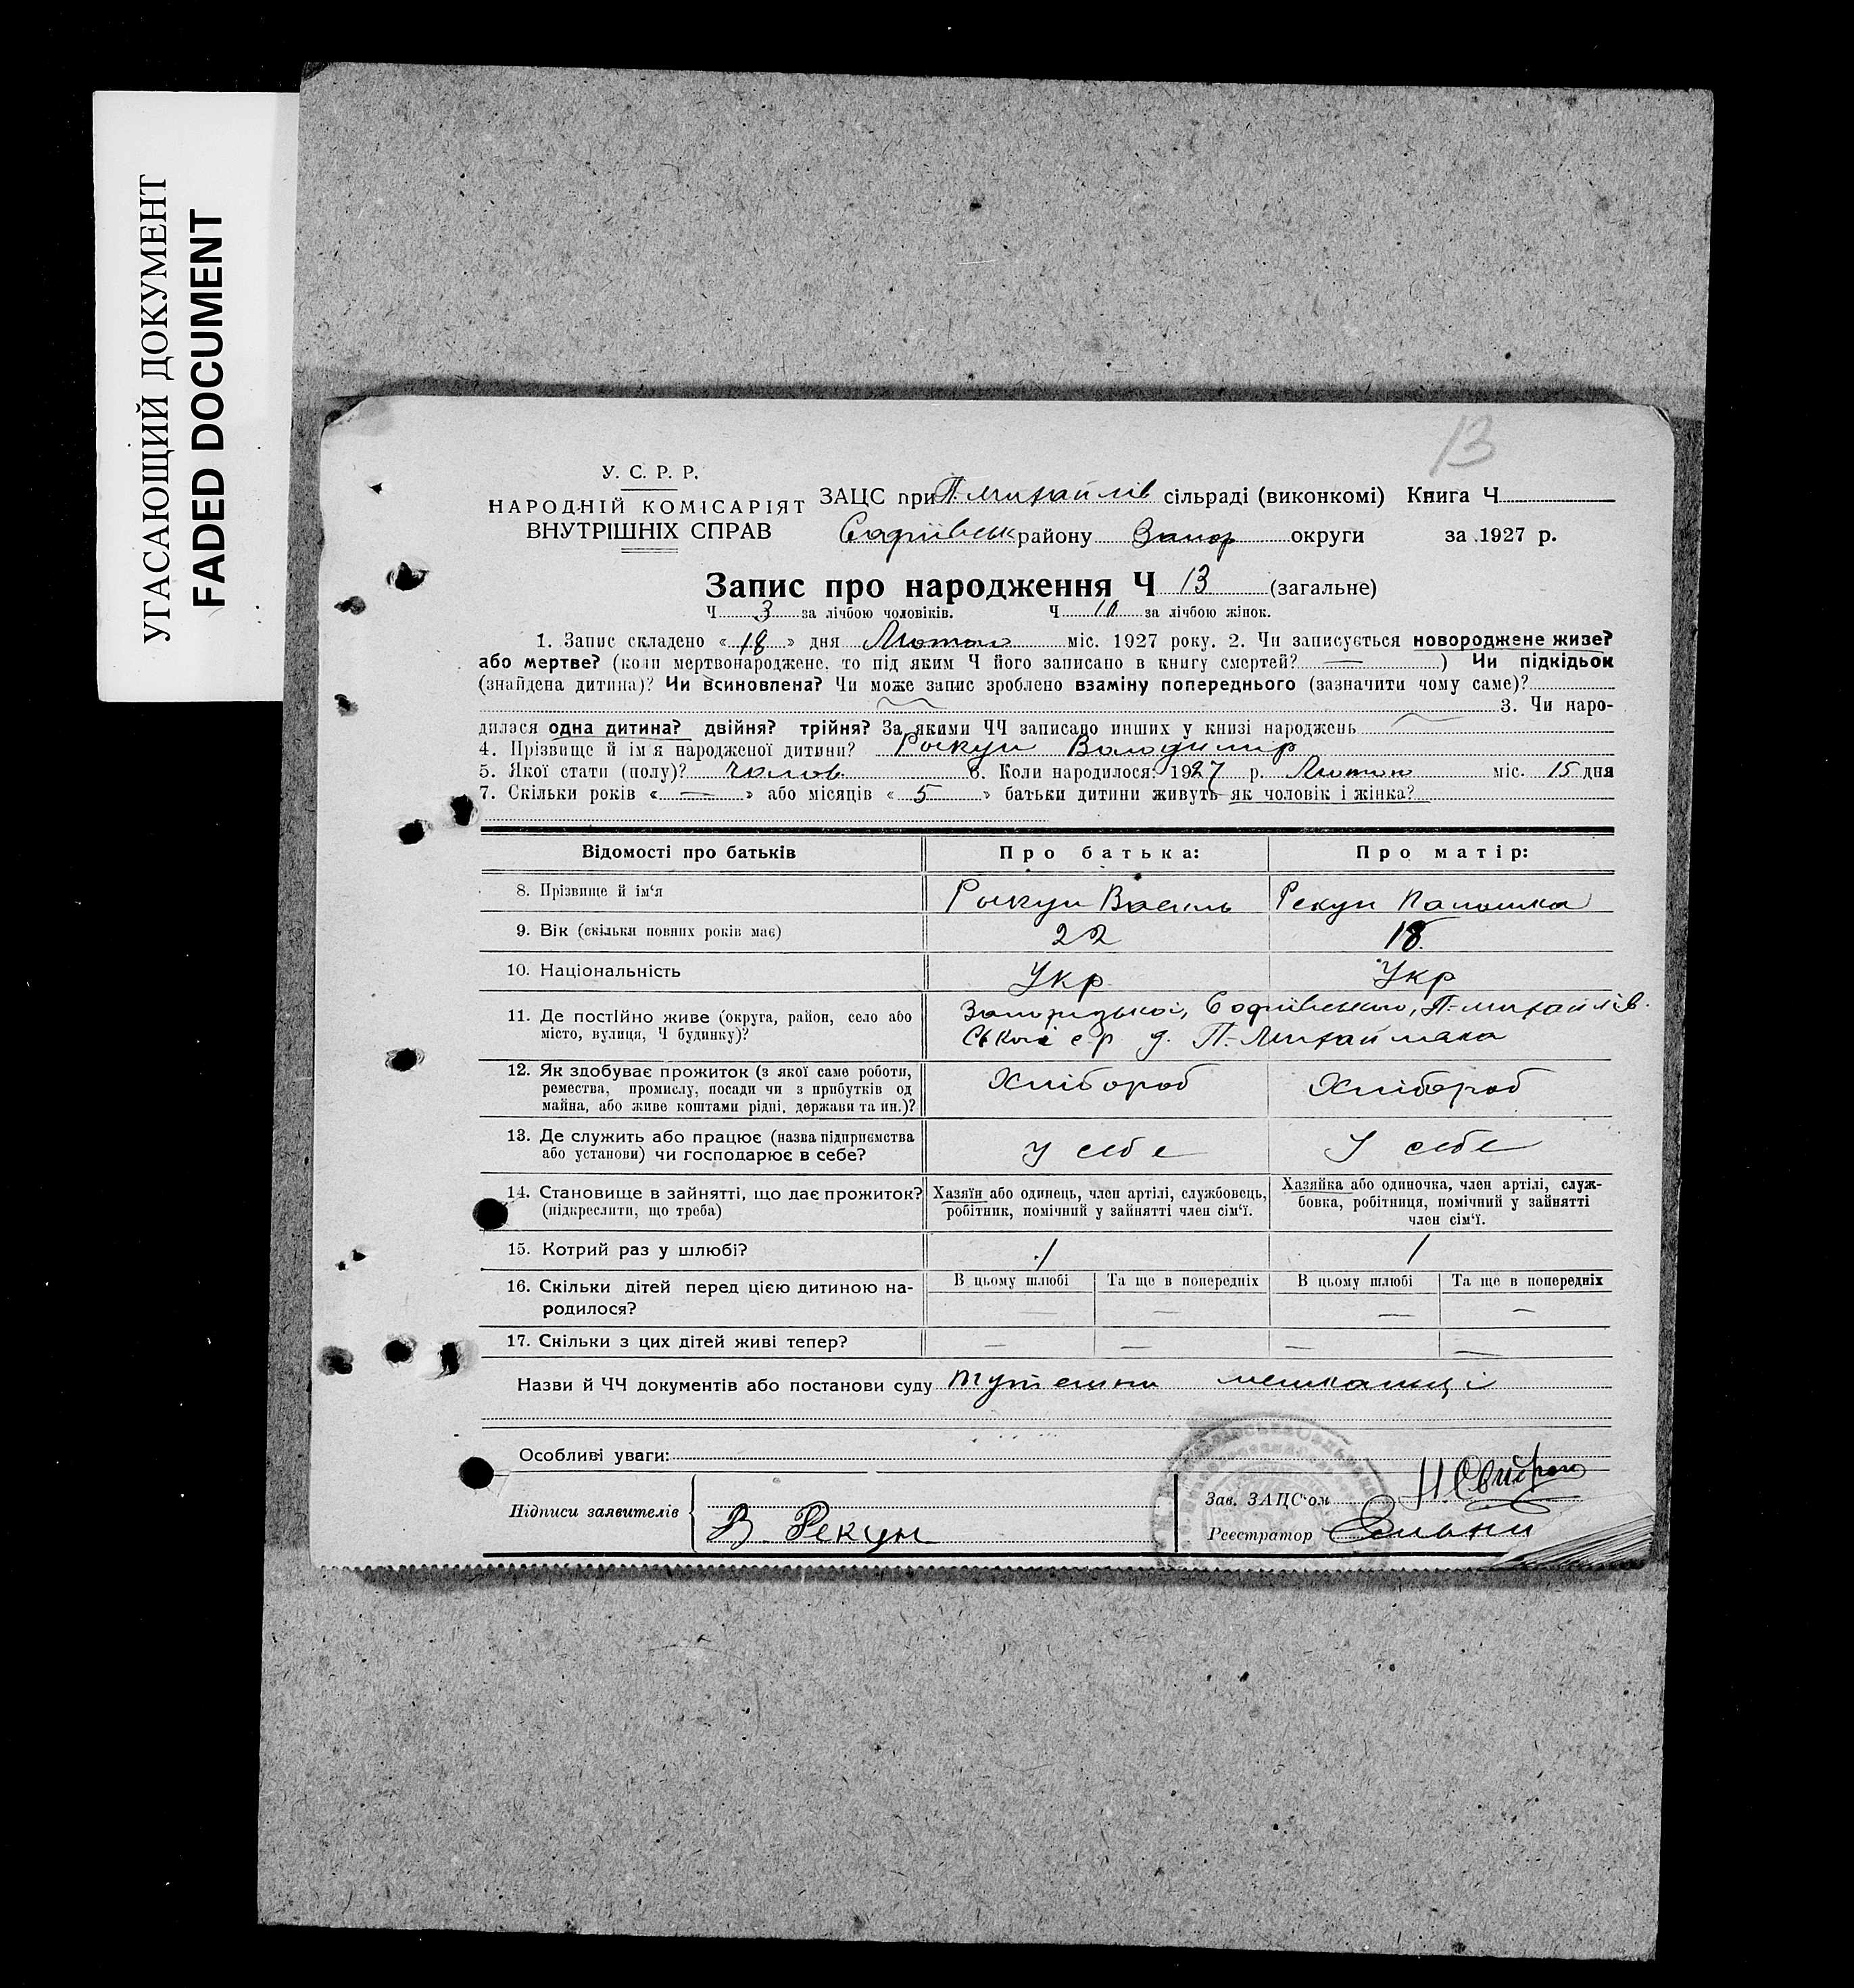 УГАСАЮЩИЙ ДОКУМЕНТ
FADED DOCUMENT
13
У. С. Р. Р.
НАРОДНІЙ КОМІСАРІЯТ
ВНУТРІШНІХ СПРАВ
ЗАЦС при П. Михайлів сільраді (виконкомі) Книга Ч
Софіївськ району Запор округи за 1927 р.
Запис про народження Ч 13 (загальне)
Ч 3 за лічбою чоловіків. Ч 10 за лічбою жінок.
1. Запис складено « 18 » дня Лютого міс. 1927 року. 2. Чи записується новороджене живе?
або мертве? (коли мертвонароджене, то під яким Ч його записано в книгу смертей? — ) Чи підкідьок
(знайдена дитина)? Чи всиновлена? Чи може запис зроблено взаміну попереднього (зазначити чому саме)?
3. Чи наро-
дилася одна дитина? двійня? трійня? За якими ЧЧ записано инших у книзі народжень
4. Прізвище й ім'я народженої дитини? Рекун Володимир
5. Якої стати (полу)? Чолов 6. Коли народилося: 1927 р. Лютого міс. 15 дня
7. Скільки років « — » або місяців « 5 » батьки дитини живуть як чоловік і жінка?
Відомості про батьків Про батька: Про матір:
8. Прізвище й ім'я Рекун Василь Рекун Палашка
9. Вік (скільки повних років має) 22 18
10. Національність Укр Укр
11. Де постійно живе (округа, район, село або
місто, вулиця, Ч будинку)?
Запорizької, Софіївського, П-михайлів
ської с р д. П-Михайлівка
12. Як здобуває прожиток (з якої саме роботи,
ремества, промислу, посади чи з прибутків од
майна, або живе коштами рідні, держави та ин.)?
Хлібороб Хлібороб
13. Де служить або працює (назва підприємства
або установи) чи господарює в себе?
У себе У себе
14. Становище в зайнятті, що дає прожиток?
(підкреслити, що треба)
Хазяїн або одинець, член артілі, службовець,
робітник, помічний у зайнятті член сім'ї.
Хазяйка або одиночка, член артілі, служ-
бовка, робітниця, помічний у зайнятті
член сім'ї.
15. Котрий раз у шлюбі? 1 1
16. Скільки дітей перед цією дитиною на-
родилося?
В цьому шлюбі Та ще в попередніх В цьому шлюбі Та ще в попередніх
— — — —
17. Скільки з цих дітей живі тепер? — — — —
Назви й ЧЧ документів або постанови суду тутешни мешканці
Особливі уваги:
Підписи заявителів
В. Рекун
Зав. ЗАЦС'ом
Реєстратор